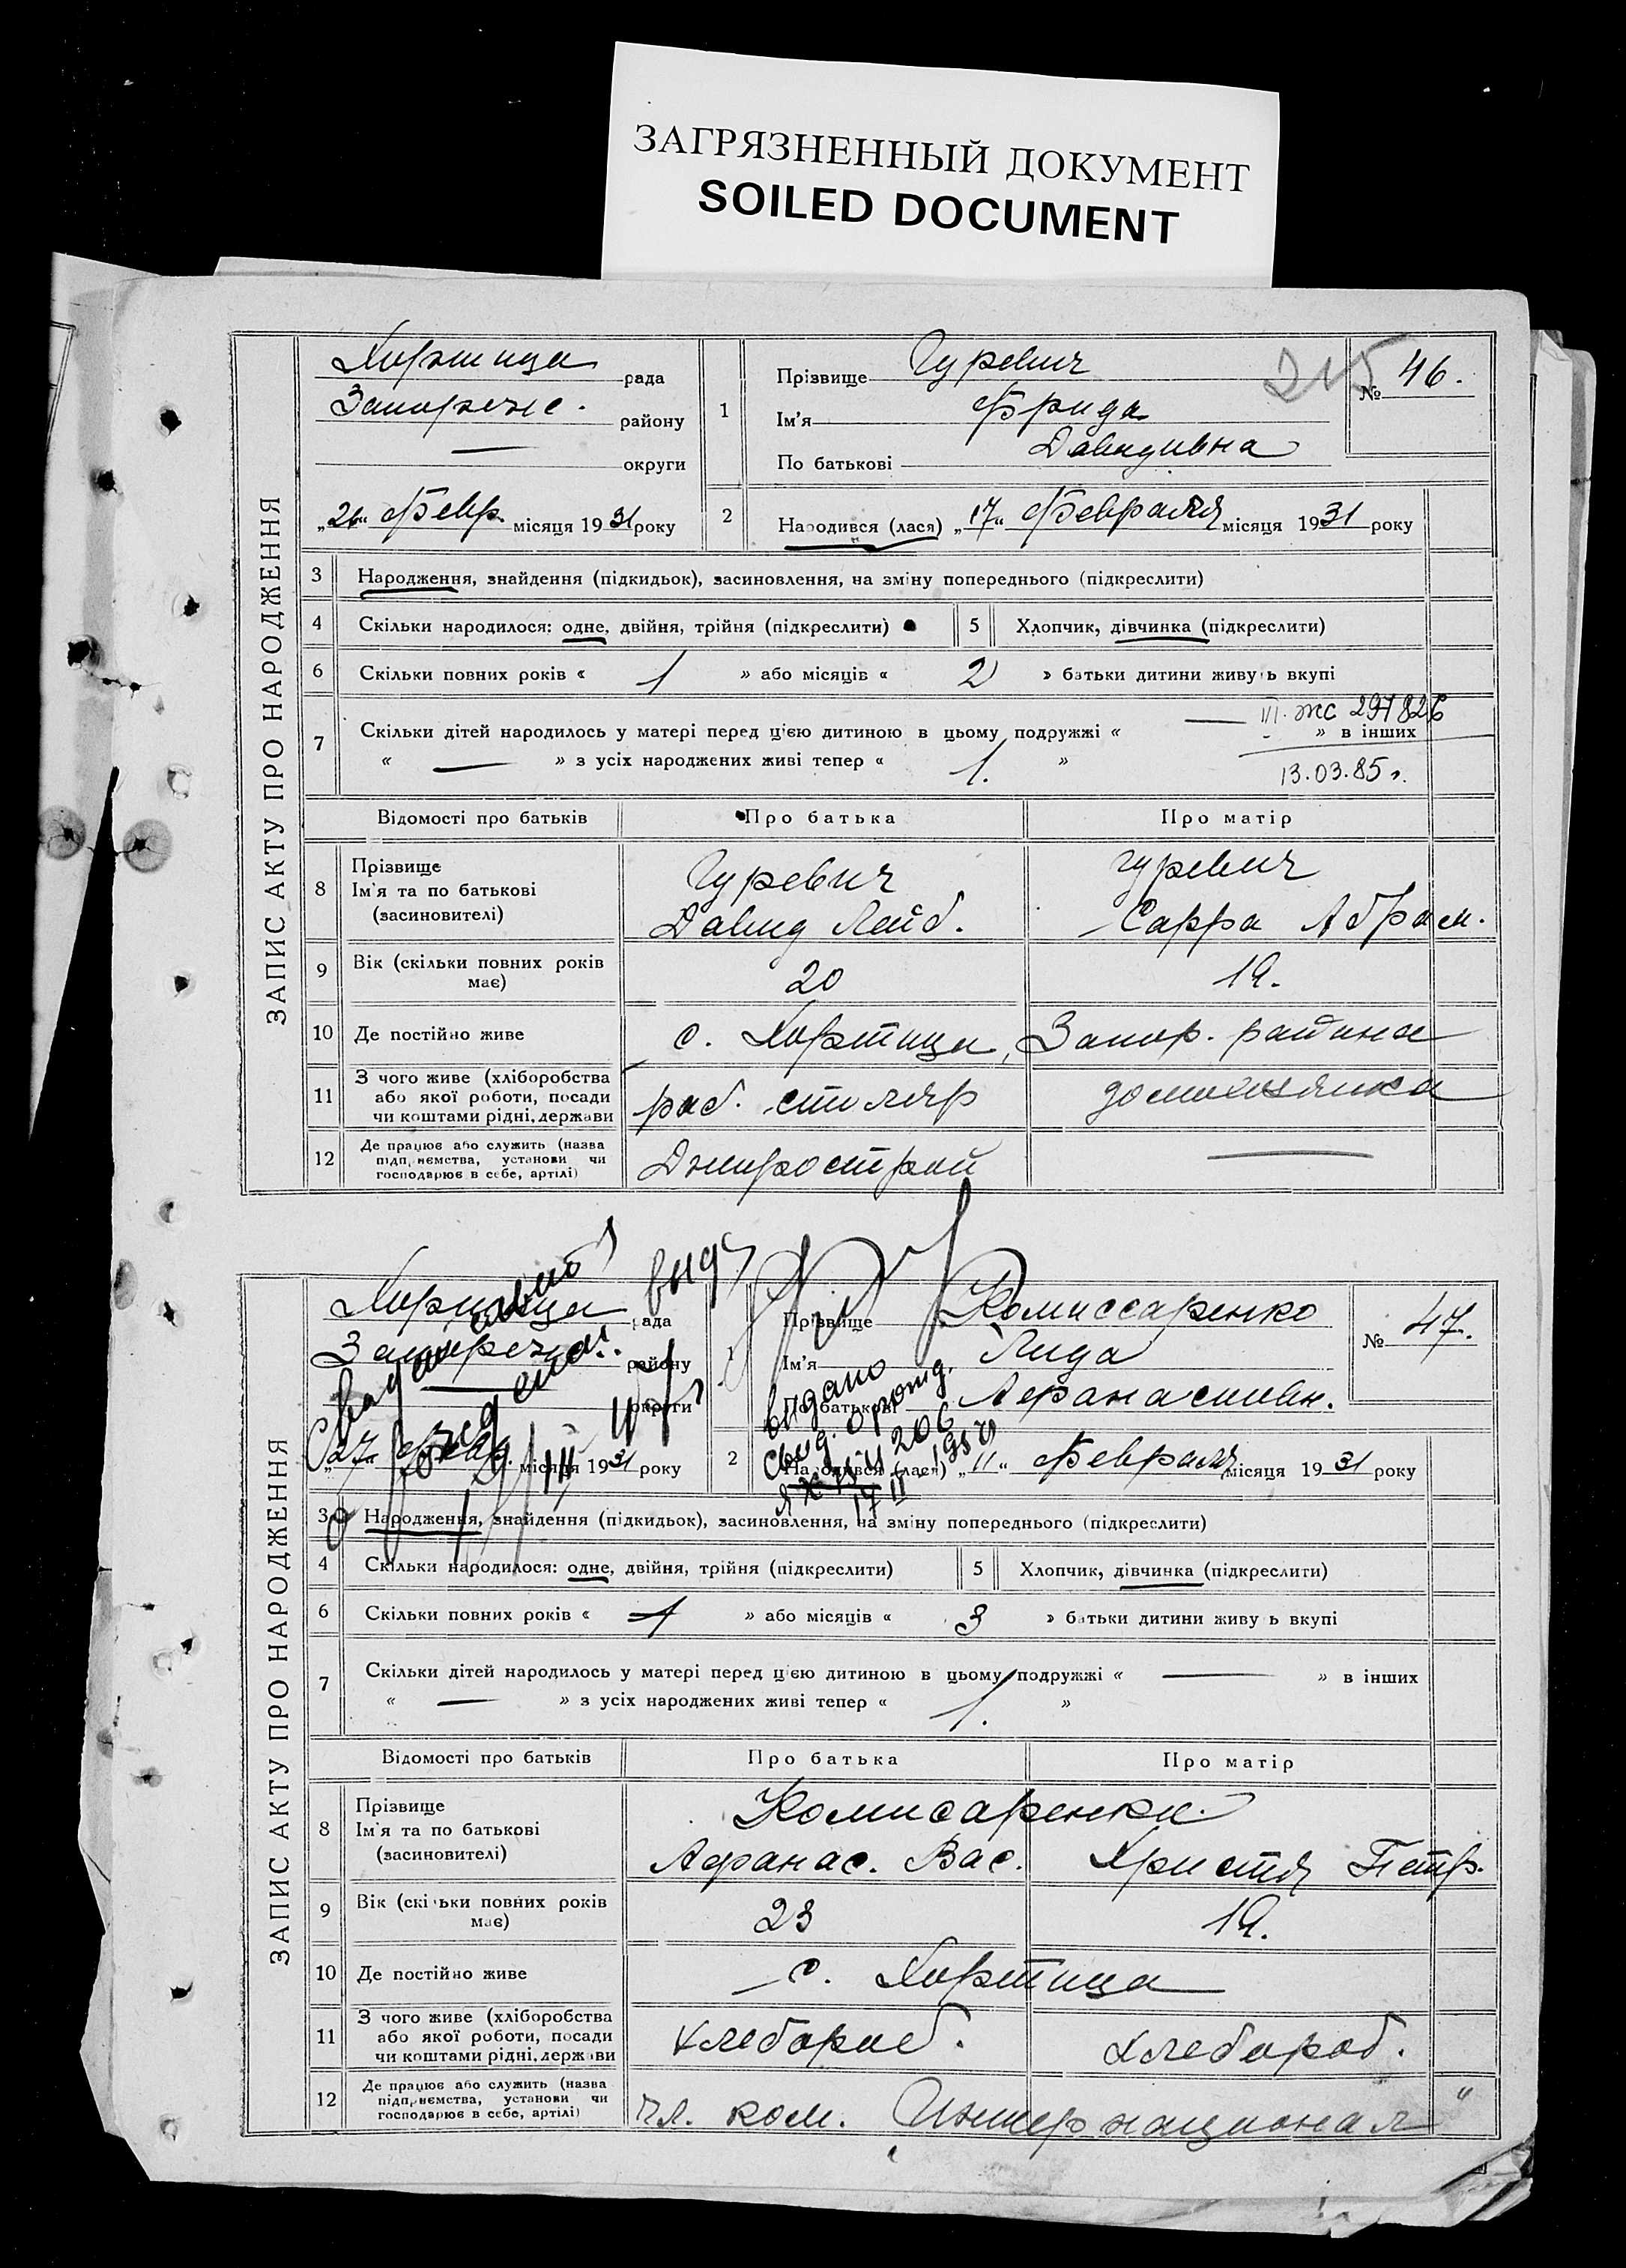 ЗАГРЯЗНЕННЫЙ ДОКУМЕНТ
SOILED DOCUMENT
ЗАПИС АКТУ ПРО НАРОДЖЕННЯ
Хортица рада
района
округи
„26“ Февр. місяця 1931 року
1
Прізвище Гуревич
Ім'я Фрида
По батькові Давидивна
215
№ 46.
2
Народився (лася) „17“ Февраля місяця 1931 року
3 Народження, знайдення (підкидьок), засиновлення, на зміну попереднього (підкреслити)
4 Скільки народилося: одне, двійня, трійня (підкреслити) 5 Хлопчик, дівчинка (підкреслити)
6 Скільки повних років « 1 » або місяців « 2 » батьки дитини живуть вкупі
III. жс 297826
7 Скільки дітей народилось у матері перед цією дитиною в цьому подружжі « — » в інших
« — » з усіх народжених живі тепер « 1. »
13.03.85 г.
Відомості про батьків Про батька Про матір
8 Прізвище Гуревич Гуревич
Ім'я та по батькові Давид Лейб. Сарра Абрам.
(засиновителі)
9 Вік (скільки повних років має) 20 19.
10 Де постійно живе с. Хортица, Запор. района
11 З чого живе (хліборобства
або якої роботи, посади
чи коштами рідні, держави раб. столяр домохозяйка
12 Де працює або служить (назва
підприємства, установи чи
господарює в себе, артілі) Днипрострой —
ЗАПИС АКТУ ПРО НАРОДЖЕННЯ
Хортица рада
району
округи
„27“ Февр. місяця 1931 року
1
Прізвище Комиссаренко
Ім'я Лида
По батькові Афанасиивн.
№ 47.
видано
свид. о рожд.
206
17 II 1950
2
Народився (лася) „11“ Февраля місяця 1931 року
3 Народження, знайдення (підкидьок), засиновлення, на зміну попереднього (підкреслити)
4 Скільки народилося: одне, двійня, трійня (підкреслити) 5 Хлопчик, дівчинка (підкреслити)
6 Скільки повних років « 1 » або місяців « 3 » батьки дитини живуть вкупі
7 Скільки дітей народилось у матері перед цією дитиною в цьому подружжі « — » в інших
« — » з усіх народжених живі тепер « 1. »
Відомості про батьків Про батька Про матір
8 Прізвище Комисаренки
Ім'я та по батькові Афанас. Вас. Христя Петр.
(засиновителі)
9 Вік (скільки повних років має) 23 19.
10 Де постійно живе с. Хортица
11 З чого живе (хліборобства
або якої роботи, посади
чи коштами рідні, держави хлебороб. хлебороб.
12 Де працює або служить (назва
підприємства, установи чи
господарює в себе, артілі) чл. ком. Интернационал "